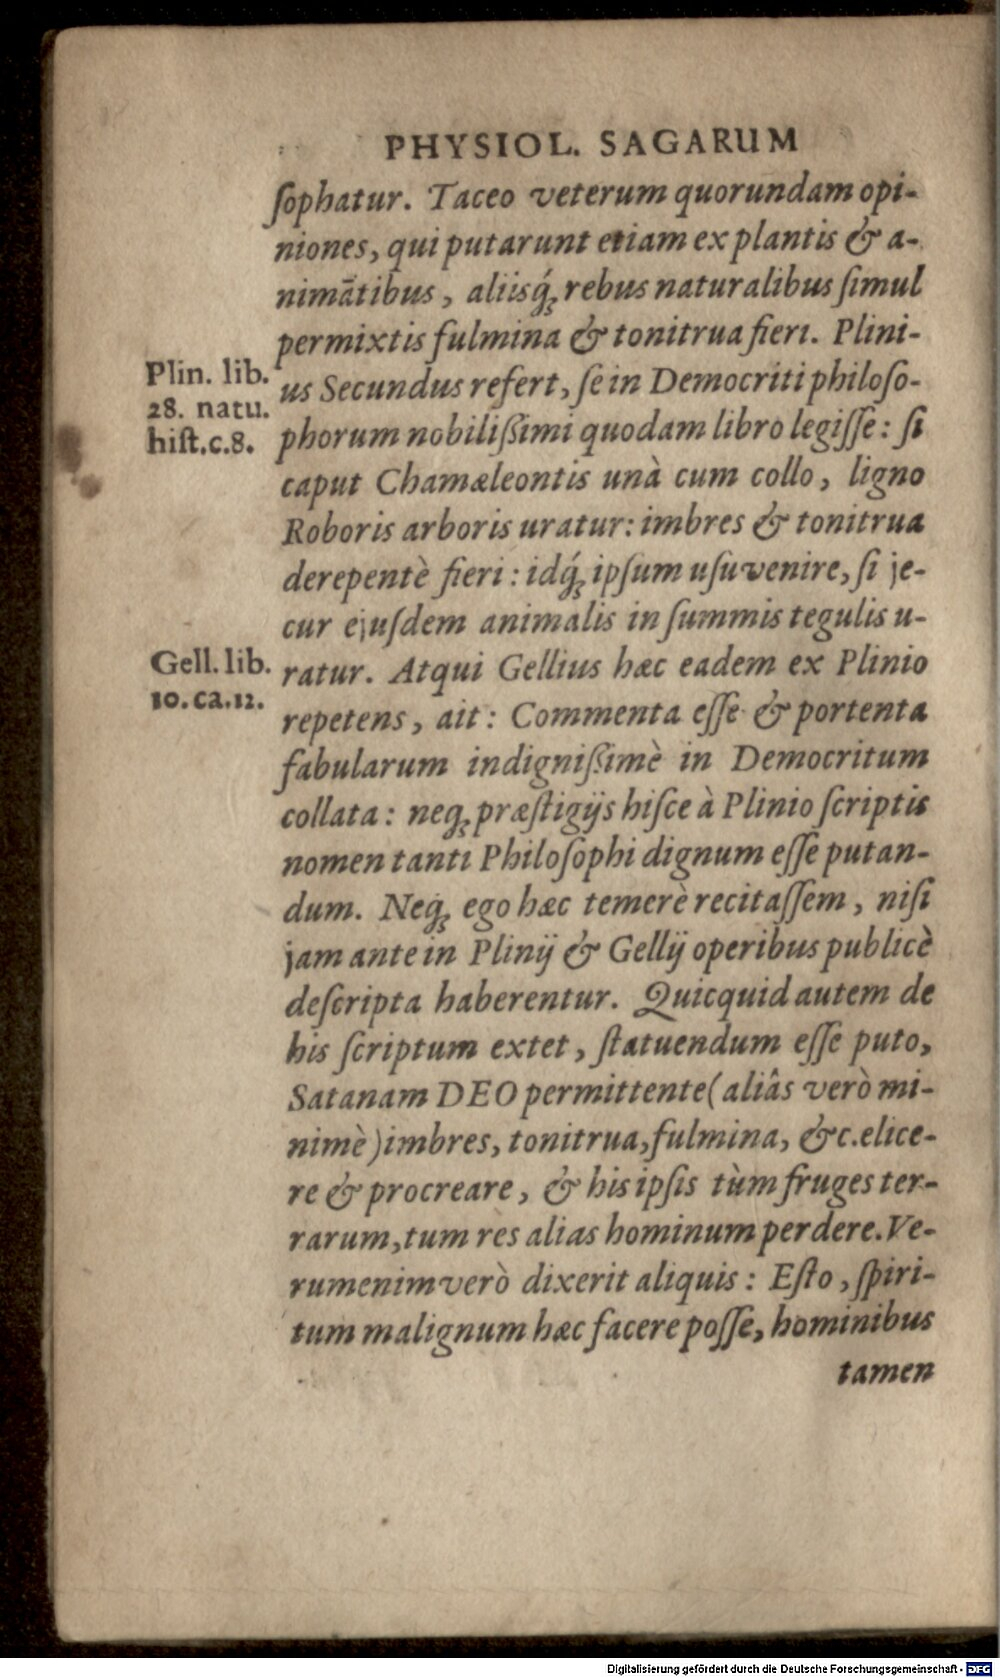 PHYSIOL. SAGARUM
ſophatur. Taceo veterum quorundam opi-
niones, qui putarunt etiam ex plantis & a-
nimãtibus, aliisq́ꝫ rebus naturalibus ſimul
permixtis fulmina & tonitrua fieri. Plini-
us Secundus refert, ſe in Democriti philoſo-
phorum nobilißimi quodam libro legiſſe: ſi
caput Chamæleontis unà cum collo, ligno
Roboris arboris uratur: imbres & tonitrua
derepentè fieri: idq́ꝫ ipſum uſuvenire, ſi je-
cur ejuſdem animalis in ſummis tegulis u-
ratur. Atqui Gellius hæc eadem ex Plinio
repetens, ait: Commenta eſſe & portenta
fabularum indignißimè in Democritum
collata: neqꝫ præſtigijs hiſce à Plinio ſcriptis
nomen tanti Philoſophi dignum eſſe putan-
dum. Neq́ꝫ ego hæc temerè recitaſſem, niſi
jam ante in Plinij & Gellij operibus publicè
deſcripta haberentur. Quicquid autem de
his ſcriptum extet, ſtatuendum eſſe puto,
Satanam DEO permittente (aliâs verò mi-
nimè) imbres, tonitrua, fulmina, &c. elice-
re & procreare, & his ipſis tùm fruges ter-
rarum, tum res alias hominum perdere. Ve-
rumenimverò dixerit aliquis: Eſto, ſpiri-
tum malignum hæc facere poſſe, hominibus
tamen
Plin. lib.
28. natu.
hiſt.c.8.
Gell. lib.
10.ca.12.
Digitalisierung gefördert durch die Deutsche Forschungsgemeinschaft - DFG